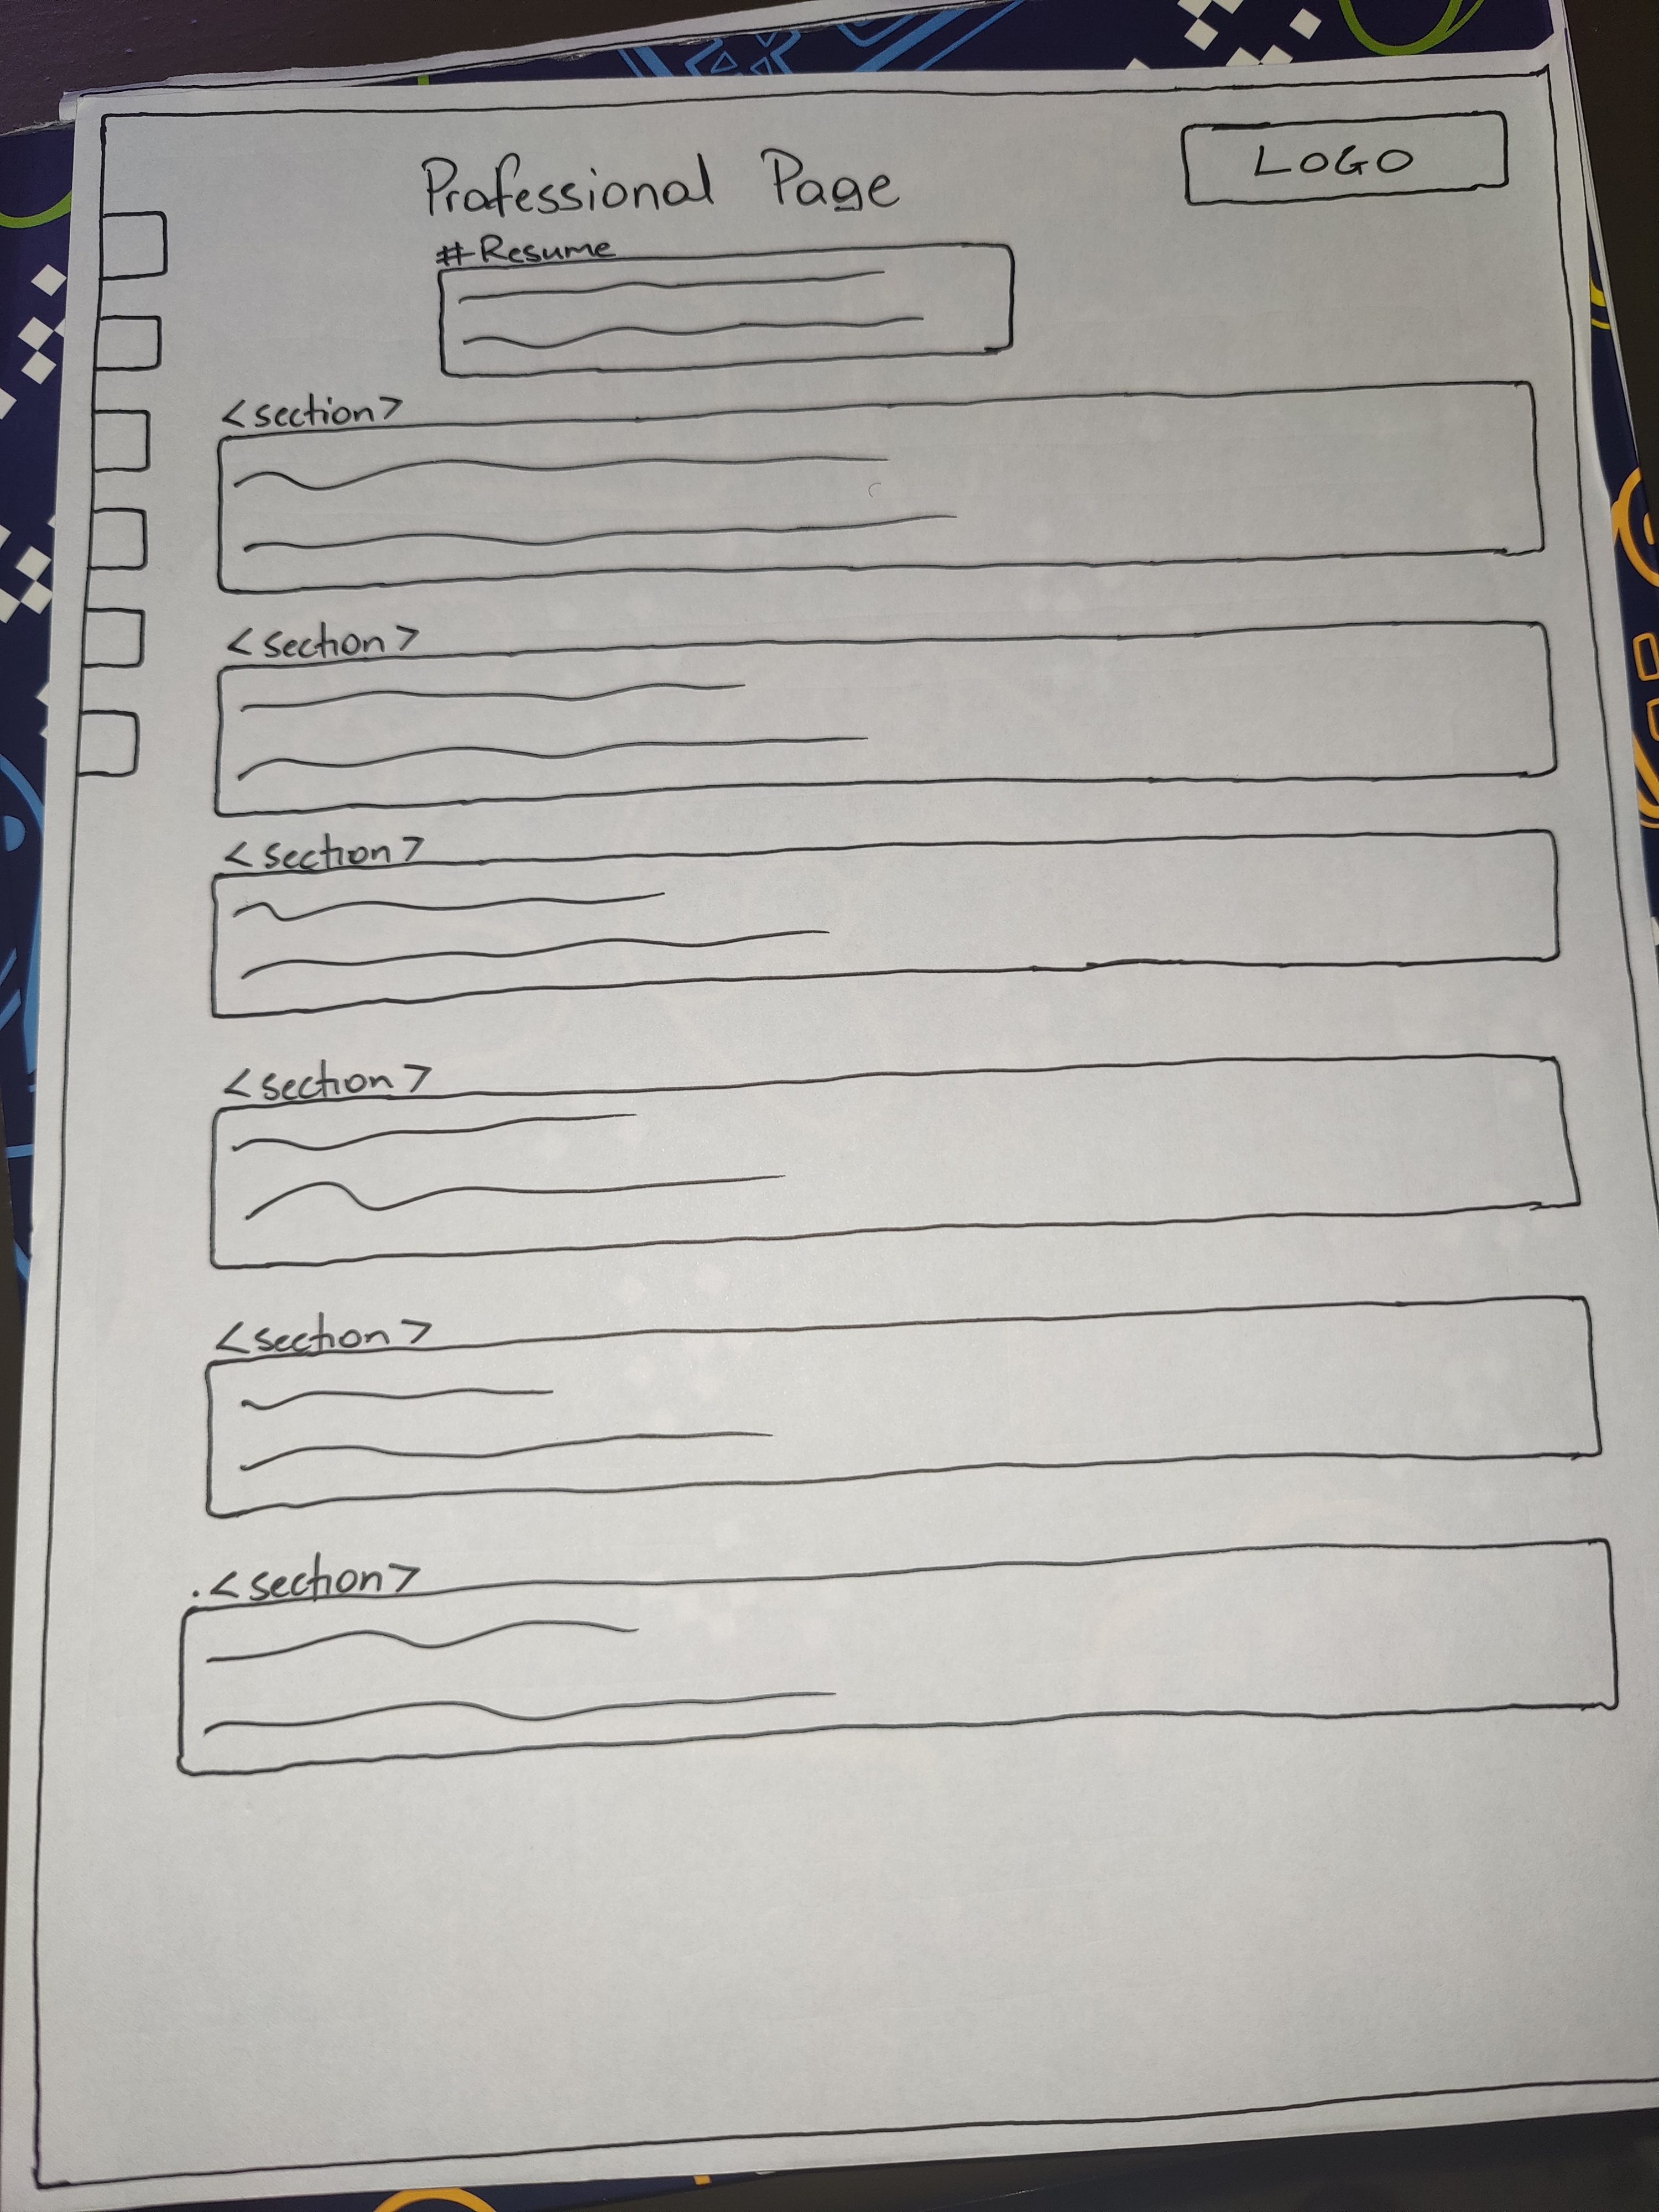 Professional Page
LOGO
#Resume
<section>
<section>
<section>
<section>
<section>
.<section>